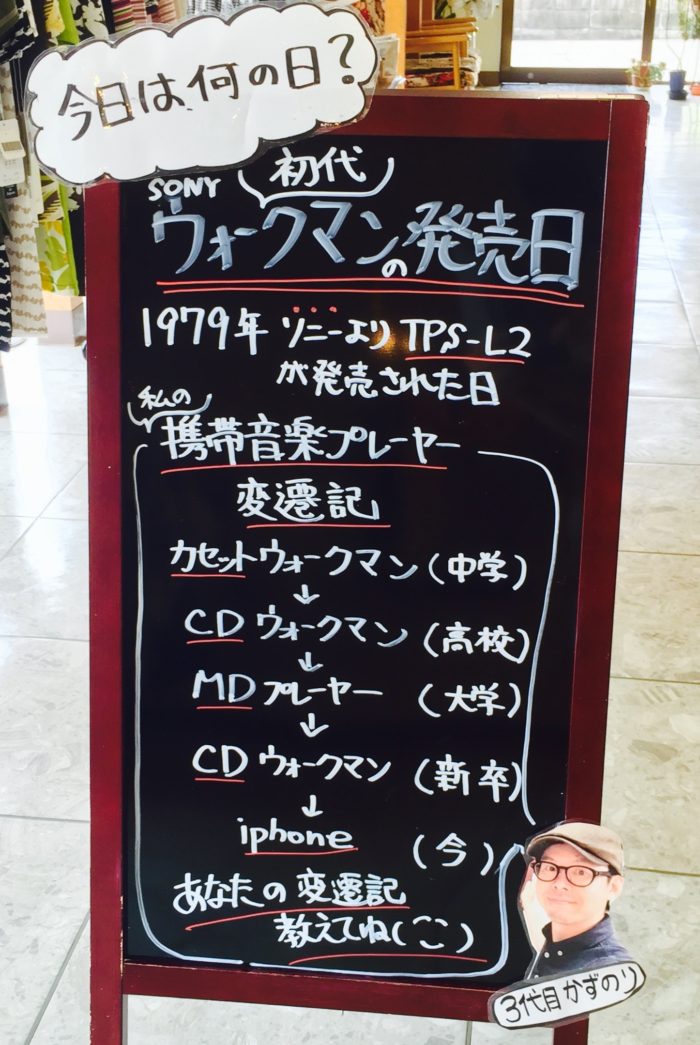 今日は、何の日?
SONY 初代
ウォークマンの発売日
1979年 ソニーより TPS-L2
が発売された日
私の
携帯音楽プレーヤー
変遷記
カセットウォークマン(中学)
↓
CDウォークマン(高校)
↓
MDプレーヤー(大学)
↓
CDウォークマン(新卒)
↓
iphone(今)
あなたの変遷記
教えてね(こ)
3代目かずのり